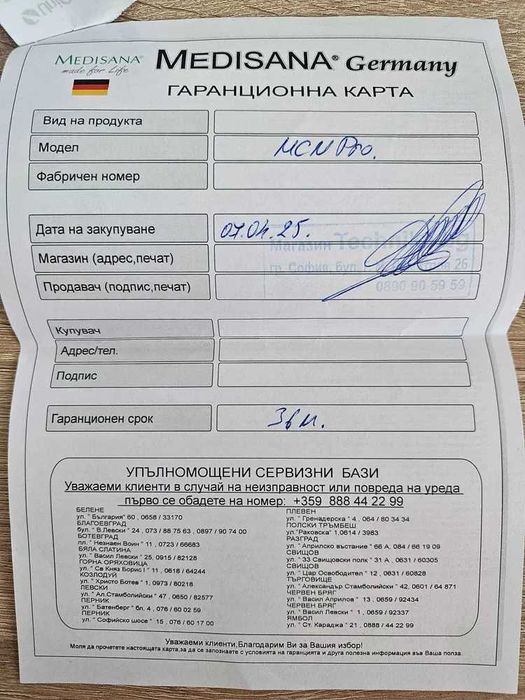 MEDISANA®
made for Life
MEDISANA® Germany
ГАРАНЦИОННА КАРТА
Вид на продукта
Модел MCN Pro.
Фабричен номер
Дата на закупуване 07.04.25.
Магазин (адрес,печат)
Магазин
гр. София, бул. 26
Продавач (подпис,печат)
0890 90 59 59
Купувач
Адрес/тел.
Подпис
Гаранционен срок 36 м.
УПЪЛНОМОЩЕНИ СЕРВИЗНИ БАЗИ
Уважаеми клиенти в случай на неизправност или повреда на уреда
първо се обадете на номер: +359 888 44 22 99
БЕЛЕНЕ
ул. " България" 60 , 0658 / 33170
БЛАГОЕВГРАД
бул. " В.Левски " 24 , 073 / 88 75 63 , 0897 / 90 74 00
БОТЕВГРАД
пл. " Незнаен Воин " 11 , 0723 / 66683
БЯЛА СЛАТИНА
ул. " Васил Левски " 25, 0915 / 82128
ГОРНА ОРЯХОВИЦА
ул. " Св Княз Борис I " 11 , 0618 / 64244
КОЗЛОДУЙ
ул. " Христо Ботев " 1, 0973 / 80218
ЛЕВСКИ
ул. " Ал.Стамболийски " 47 , 0650 / 82577
ПЕРНИК
ул. " Батенберг " бл. 4 , 076 / 60 02 59
ПЕРНИК
ул. " Софийско шосе " 15 , 076 / 60 17 00
ПЛЕВЕН
ул. " Гренадерска " 4 , 064 / 80 34 34
ПОЛСКИ ТРЪМБЕШ
ул. "Раковска" 1,0614 / 3983
РАЗГРАД
ул. " Априлско въстание " 66 А, 084 / 66 19 09
СВИЩОВ
ул. " 33 Свищовски полк " 31 А , 0631 / 60305
СВИЩОВ
ул. " Цар Освободител " 12 , 0631 / 60828
ТЪРГОВИЩЕ
ул. " Александър Стамболийски " 42, 0601 / 64 871
ЧЕРВЕН БРЯГ
ул. " Васил Априлов " 13 , 0659 / 92434
ЧЕРВЕН БРЯГ
ул. " Васил Левски " 1 , 0659 / 92337
ЯМБОЛ
ул. " Ст. Караджа " 21 , 0888 / 44 22 99
Уважаеми клиенти,Благодарим Ви за Вашия избор!
Моля да прочетете настоящата карта,за да се запознаете с условията на гаранцията и друга полезна информация във Ваша полза.